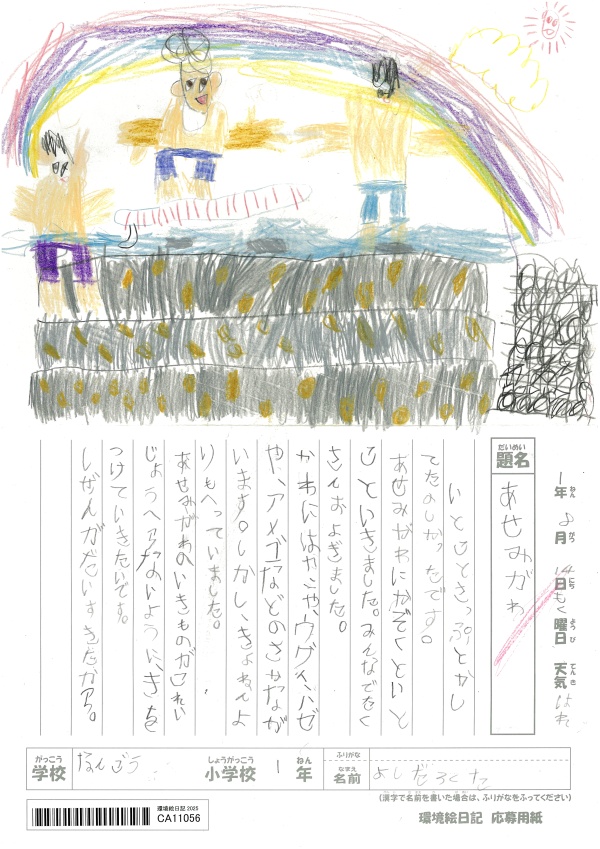 1年 8月 14日 もく曜日 天気 はれ
ねん がつ にち ようび てんき
だいめい
題名
あせみがわ
いとことさっぷとかし
てたのしかったです。
あせみがわにかぞくといと
ことといきました。みんなでたく
さんおよぎました。
かわにはやこや、ウグイ、ハゼ
や、アメゴらなどのさかなが
います。しかし、きょねんよ
りもへっていました。
あせみがわのいきものがこれい
じょうへらないように、きを
つけていきたいです。
しぜんがだいすきだから。
がっこう
学校
なんごう
しょうがっこう
小学校
1
ねん
年
ふりがな
なまえ
名前
よしだ ろくた
(漢字で名前を書いた場合は、ふりがなをふってください)
環境絵日記 2025
CA11056
環境絵日記 応募用紙